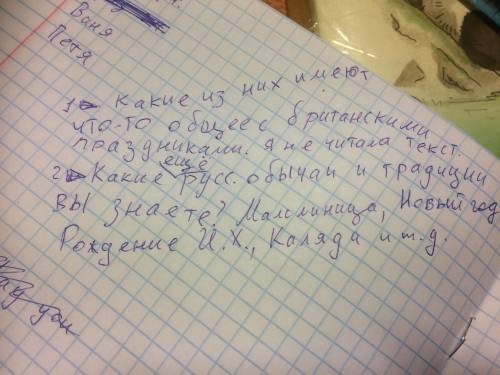 Ваня
Петя
1. Какие из них имеют
что-то общее с британскими
праздниками. я не читала текст.
еще
2. Какие русс. обычаи и традиции
вы знаете? Маслиница, Новый год
Рождение И.Х., Каляда и т.д.